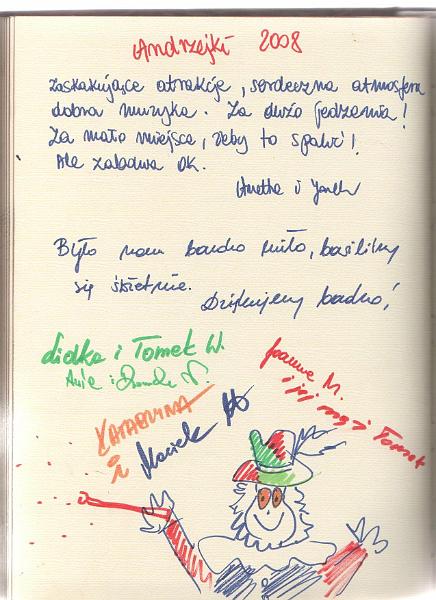 Andrzejki 2008
Zaskakujące atrakcje, serdeczna atmosfera
dobra muzyka. Za dużo jedzenia!
Za mało miejsca, żeby to spalić!
Ale zabawa OK.
Anetka i Janek
Było nam bardzo miło, bawiliśmy
się świetnie.
Dziękujemy bardzo!
Lidka i Tomek W.
Ania i
Joanna M.
i jej mąż Tomek
KATARZYNA
i Maciek